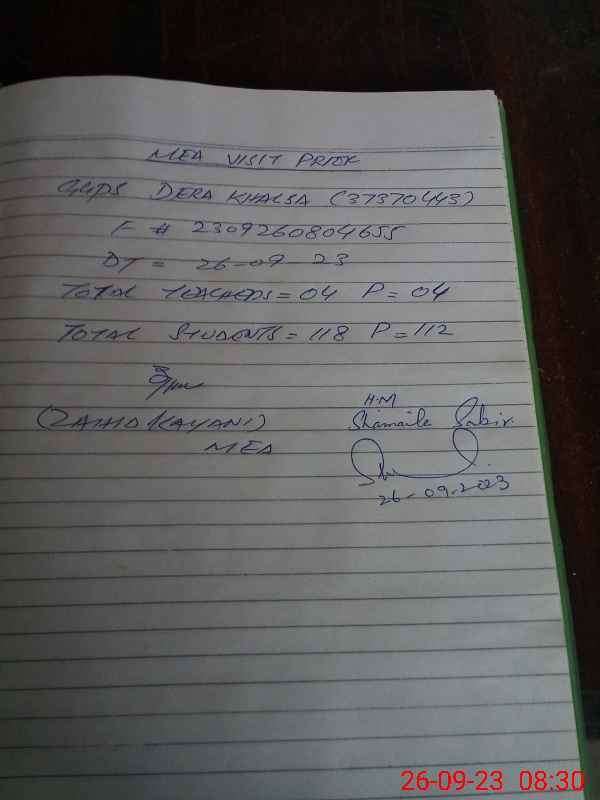 MEA VISIT PRIOR
GGPS DERA KHALSA (37370443)
F # 2309260804655
DT = 26-09-23
TOTAL TEACHERS = 04 P = 04
TOTAL STUDENTS = 118 P = 112
(ZAHID KAYANI)
MEA
H.M
Shamaila Sabir.
26-09-2023
26-09-23 08:30